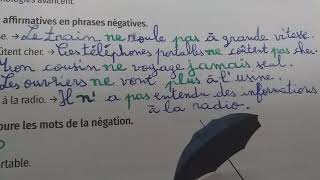 nologies avancent.
affirmatives en phrases négatives.
se. → Le train ne roule pas à grande vitesse.
ûtent cher. → Les téléphones portables ne coûtent pas cher.
Mon cousin ne voyage jamais seul.
Les ouvriers ne vont plus à l'usine.
à la radio. → Il n'a pas entendu des informations
à la radio.
oure les mots de la négation.
ortable.